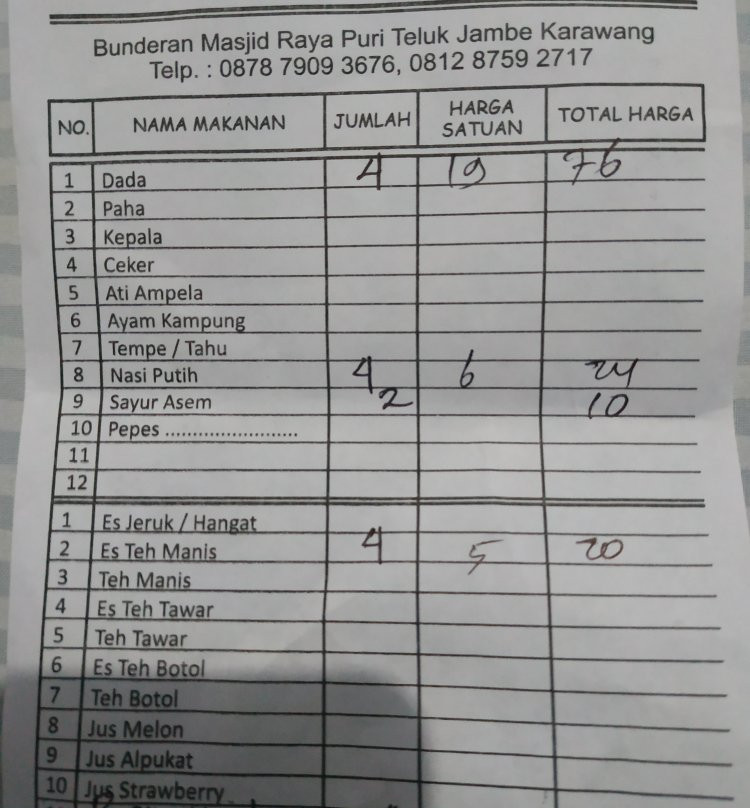 Bunderan Masjid Raya Puri Teluk Jambe Karawang
Telp. : 0878 7909 3676, 0812 8759 2717
NO. NAMA MAKANAN JUMLAH HARGA SATUAN TOTAL HARGA
1 Dada 4 19 76
2 Paha
3 Kepala
4 Ceker
5 Ati Ampela
6 Ayam Kampung
7 Tempe / Tahu
8 Nasi Putih 4 6 24
9 Sayur Asem 2 10
10 Pepes ........................
11
12
1 Es Jeruk / Hangat
2 Es Teh Manis 4 5 20
3 Teh Manis
4 Es Teh Tawar
5 Teh Tawar
6 Es Teh Botol
7 Teh Botol
8 Jus Melon
9 Jus Alpukat
10 Jus Strawberry